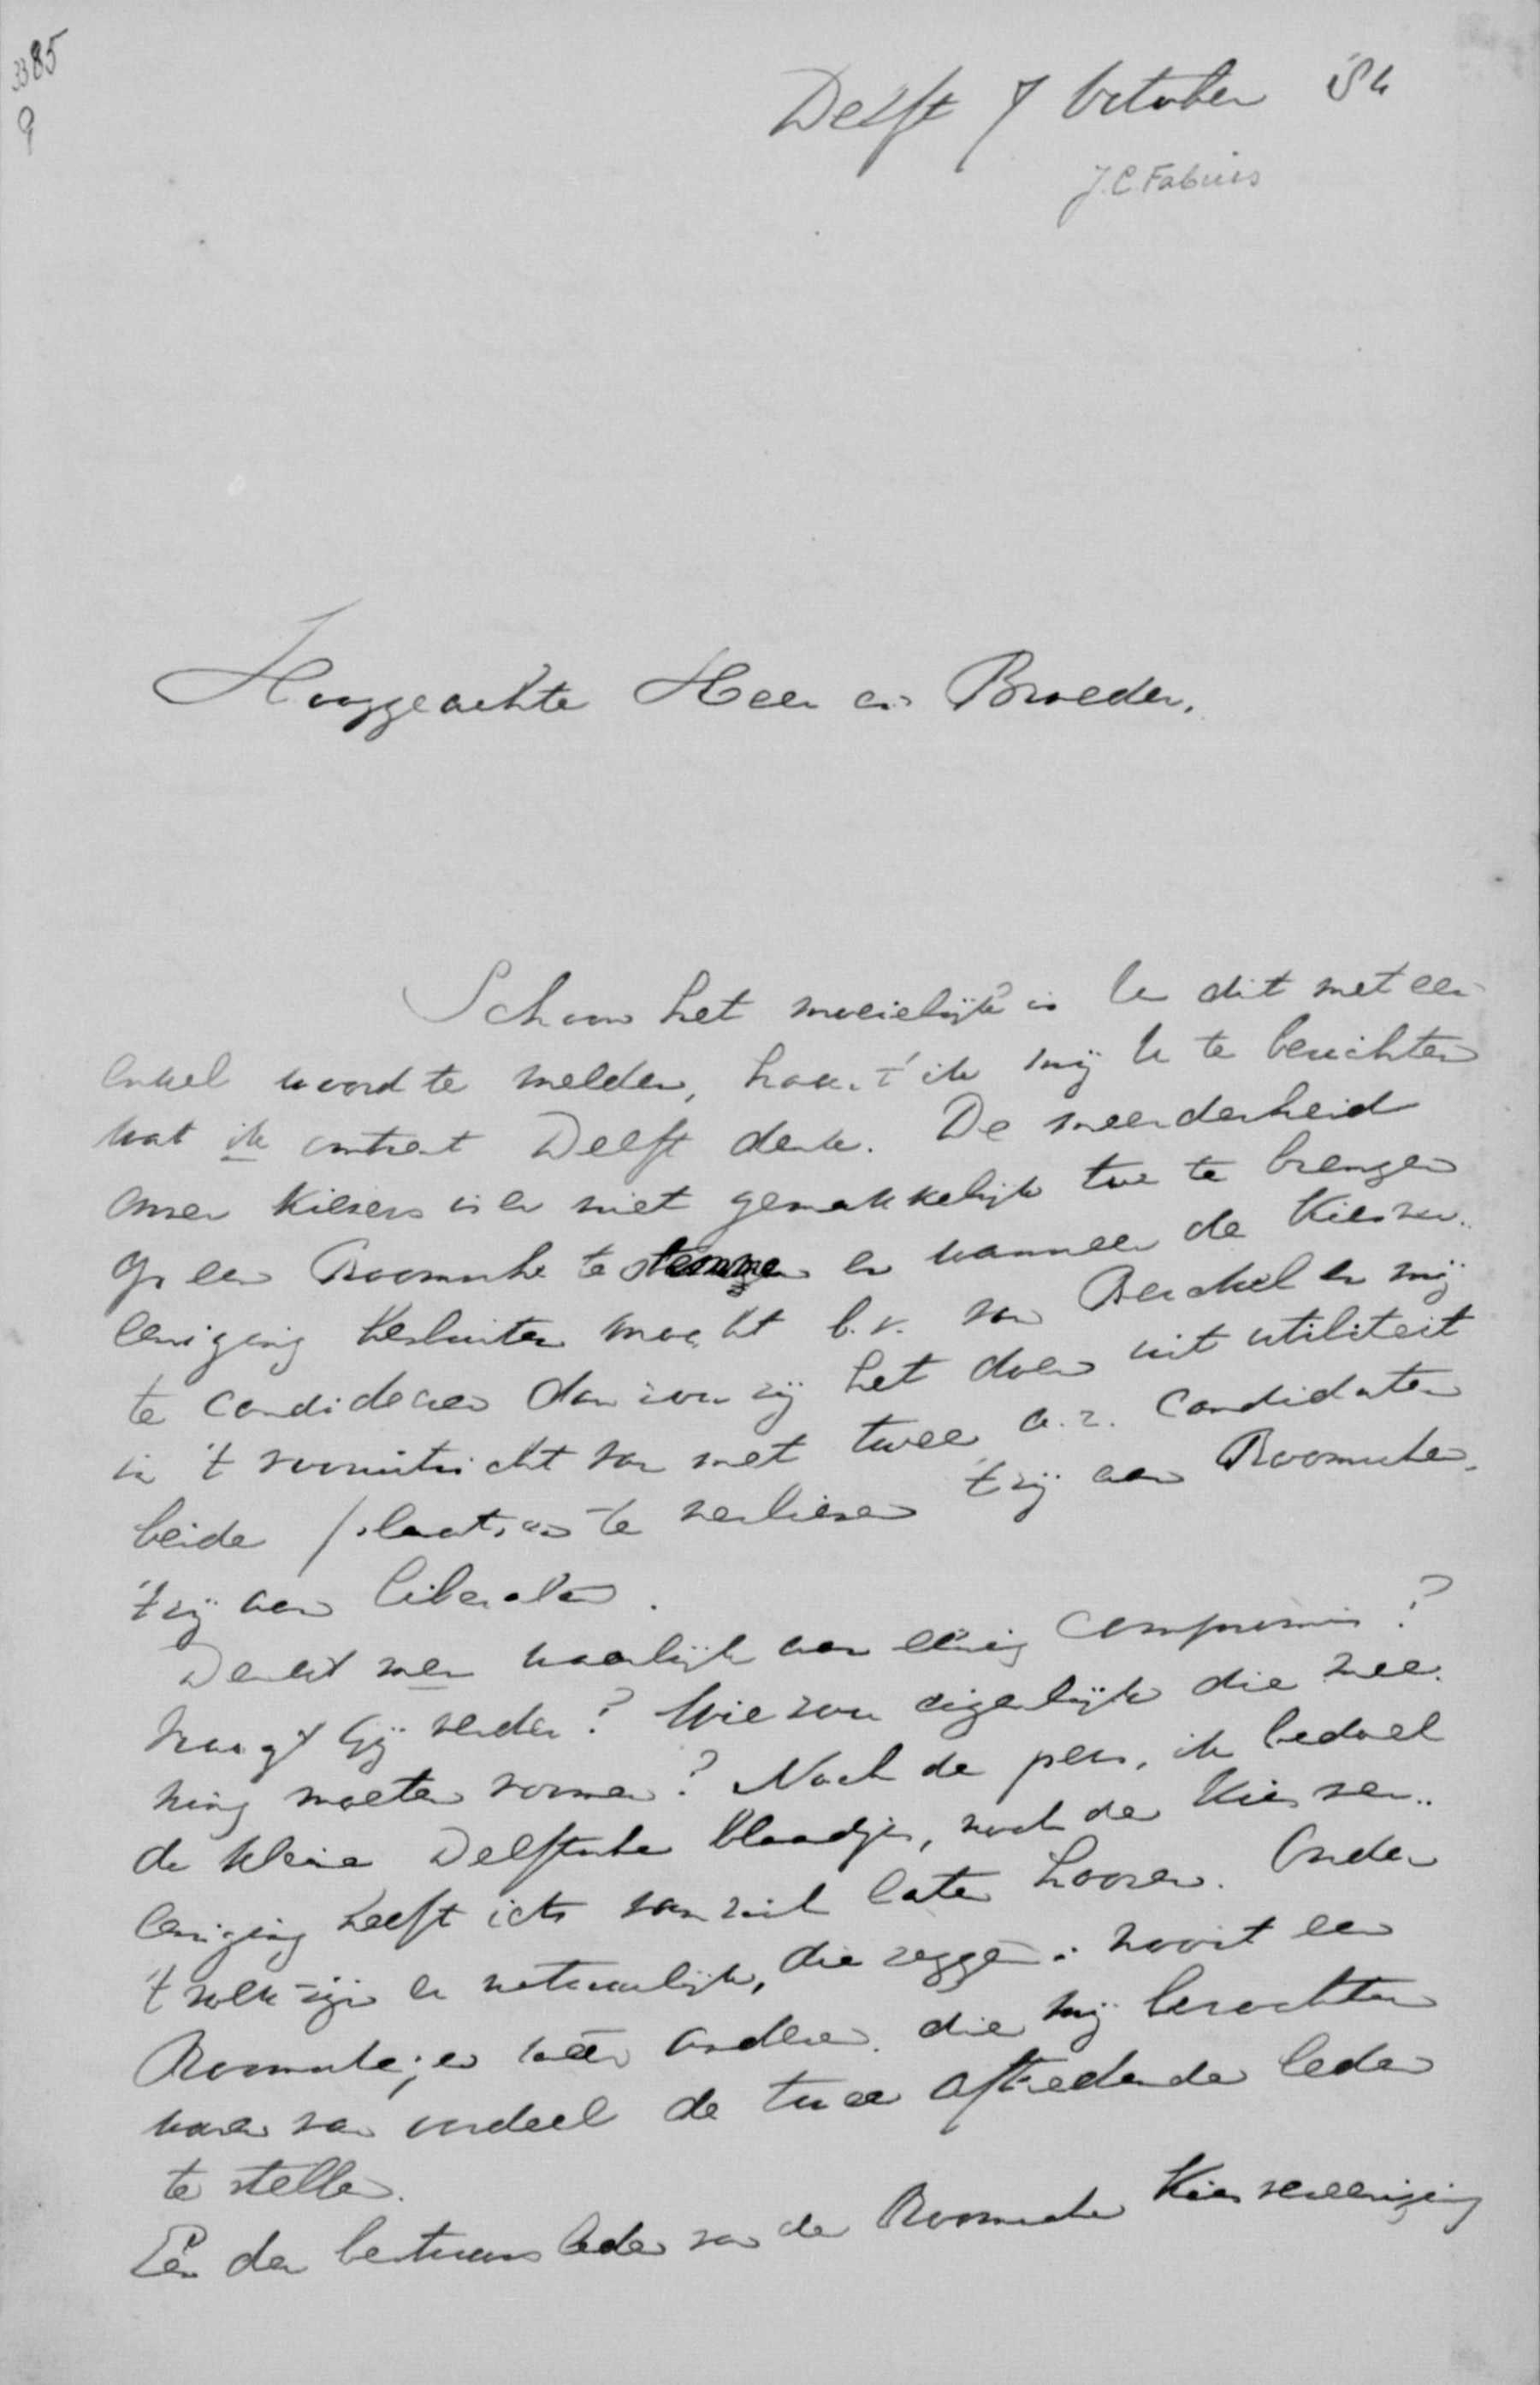 3385
9
Delft 7 October '84
J.C. Fabius
Hooggeachte Heer en Broeder,
Schoon het moeielijk is U dit met een
enkel woord te melden, haast ik mij U te berichten
wat ik omtrent Delft denk. De meerderheid
onzer kiezers is er niet gemakkelijk toe te brengen
op een Roomsche te stemmen en wanneer de Kiesver-
eeniging besluiten mocht b.v. van Berckel en mij
te candideren dan zou zij het doen uit utiliteit
in 't vooruitzicht van met twee a.r. candidaten
beide plaatsen te verliezen 't zij aan Roomschen,
't zij aan liberalen.
Denkt men waarlijk aan eenig compromis?
vraagt Gij verder? Wie zou eigenlijk die mee-
ning moeten vormen? Noch de pers, ik bedoel
de kleine Delftsche blaadjes, noch de Kiesver-
eeniging heeft iets van zich laten hooren. Onder
't volk zijn er natuurlijk, die zeggen: nooit een
Roomsche; en weer anderen die mij berichtten
waren van oordeel de twee aftredende leden
te stellen.
Één der bestuursleden van de Roomsche Kiesvereeniging